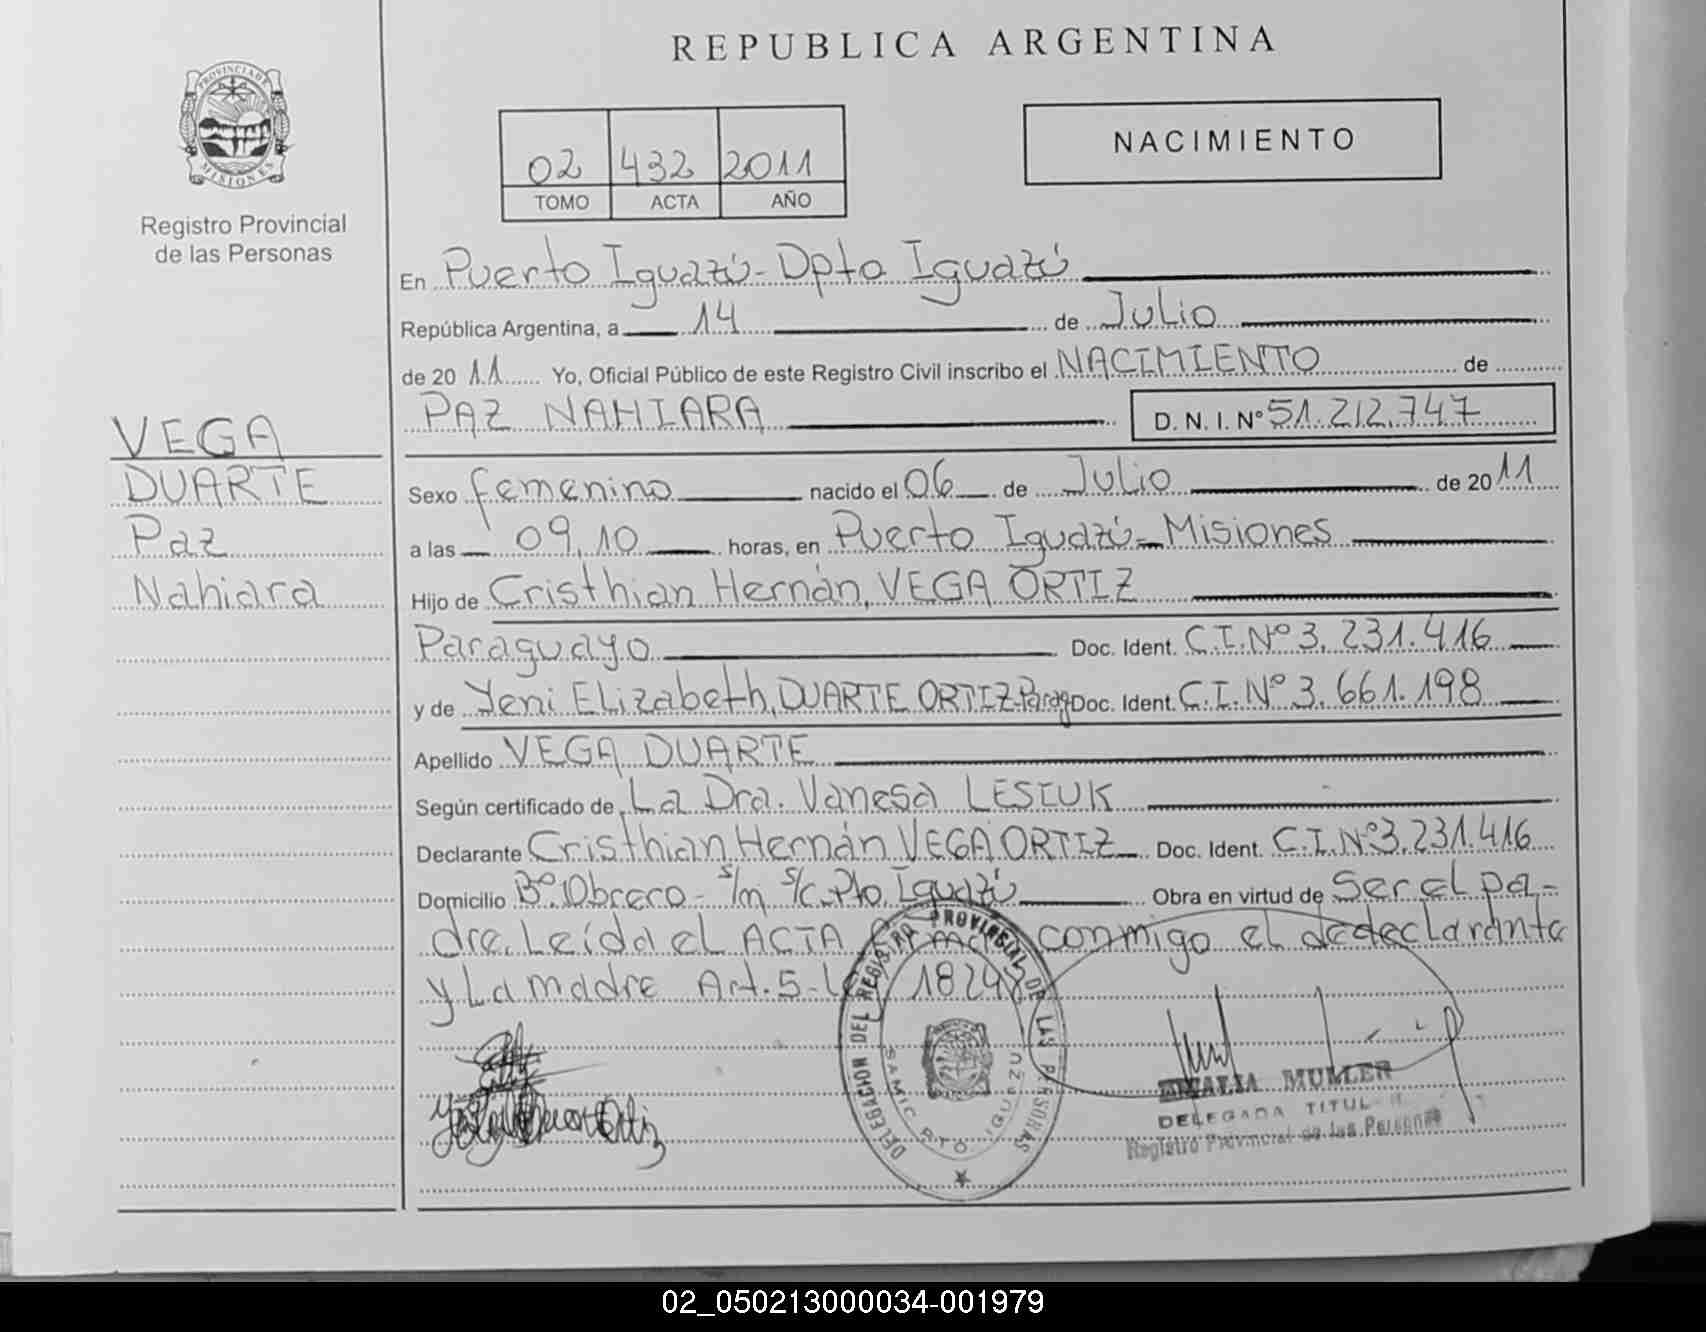 REPUBLICA ARGENTINA
PROVINCIA DE
MISIONES
Registro Provincial
de las Personas
02 432 2011
TOMO ACTA AÑO
NACIMIENTO
En Puerto Iguazú - Dpto Iguazú
República Argentina, a 14 de Julio
de 20 11 Yo, Oficial Público de este Registro Civil inscribo el NACIMIENTO de
PAZ NAHIARA D. N. I. N° 51.212.747
VEGA
DUARTE
Paz
Nahiara
Sexo femenino nacido el 06 de Julio de 20 11
a las 09,10 horas, en Puerto Iguazú - Misiones
Hijo de Cristhian Hernán, VEGA ORTIZ
Paraguayo Doc. Ident. C.I.Nº 3.231.416
y de Yeni Elizabeth, DUARTE ORTIZ-Parag Doc. Ident. C.I.Nº 3.661.198
Apellido VEGA DUARTE
Según certificado de La Dra. Vanesa LESIUK
Declarante Cristhian Hernán VEGA ORTIZ Doc. Ident. C.I.Nº 3.231.416
Domicilio Bº. Obrero - s/m s/c - Pto. Iguazú Obra en virtud de Ser el pa-
dre. Leída el ACTA conmigo el dedeclarante
y La madre Art. 5 - 18248
DELEGACION DEL REGISTRO PROVINCIAL DE LAS PERSONAS
SAMIC PTO. IGUAZU
MULLER
DELEGADA TITUL
Registro Provincial de las Personas
02_050213000034-001979